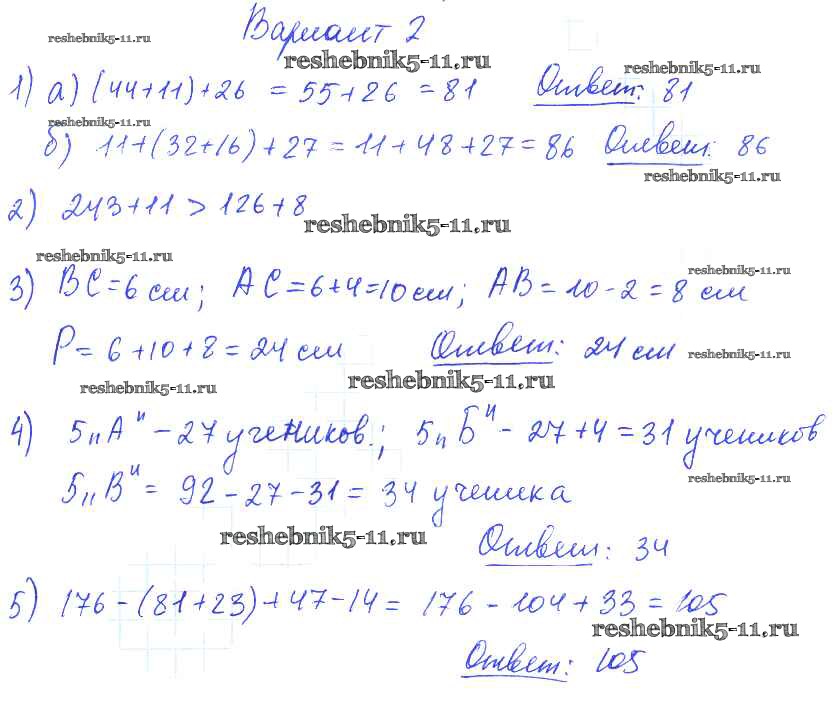 Вариант 2
reshebnik5-11.ru
reshebnik5-11.ru
reshebnik5-11.ru
1) а) (44+11)+26 = 55+26 = 81 Ответ: 81
reshebnik5-11.ru
б) 11+(32+16)+27 = 11+48+27 = 86 Ответ: 86
reshebnik5-11.ru
2) 243+11 > 126+8
reshebnik5-11.ru
reshebnik5-11.ru
reshebnik5-11.ru
3) BC=6 см; AC=6+4=10 см; AB=10-2=8 см
P= 6+10+8 = 24 см Ответ: 24 см
reshebnik5-11.ru
reshebnik5-11.ru
reshebnik5-11.ru
4) 5„А" - 27 учеников.; 5„Б" - 27+4 = 31 учеников
reshebnik5-11.ru
5„В" = 92-27-31 = 34 ученика
reshebnik5-11.ru
Ответ: 34
5) 176-(81+23)+47-14 = 176-104+33 = 105
reshebnik5-11.ru
Ответ: 105